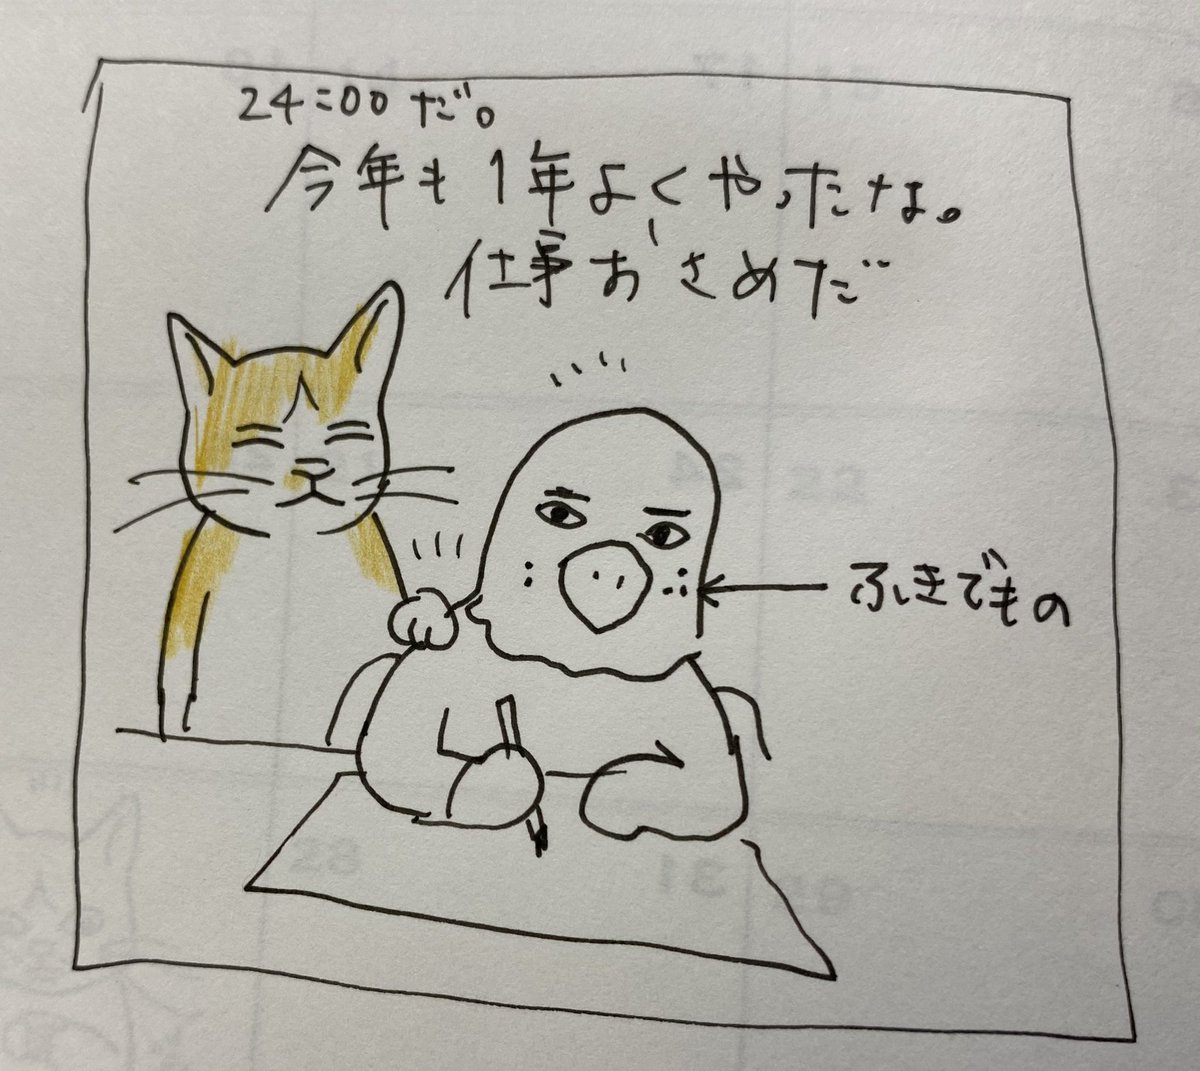 24:00 だ。
今年も1年よくやったな。
仕事おさめだ
ふきでもの